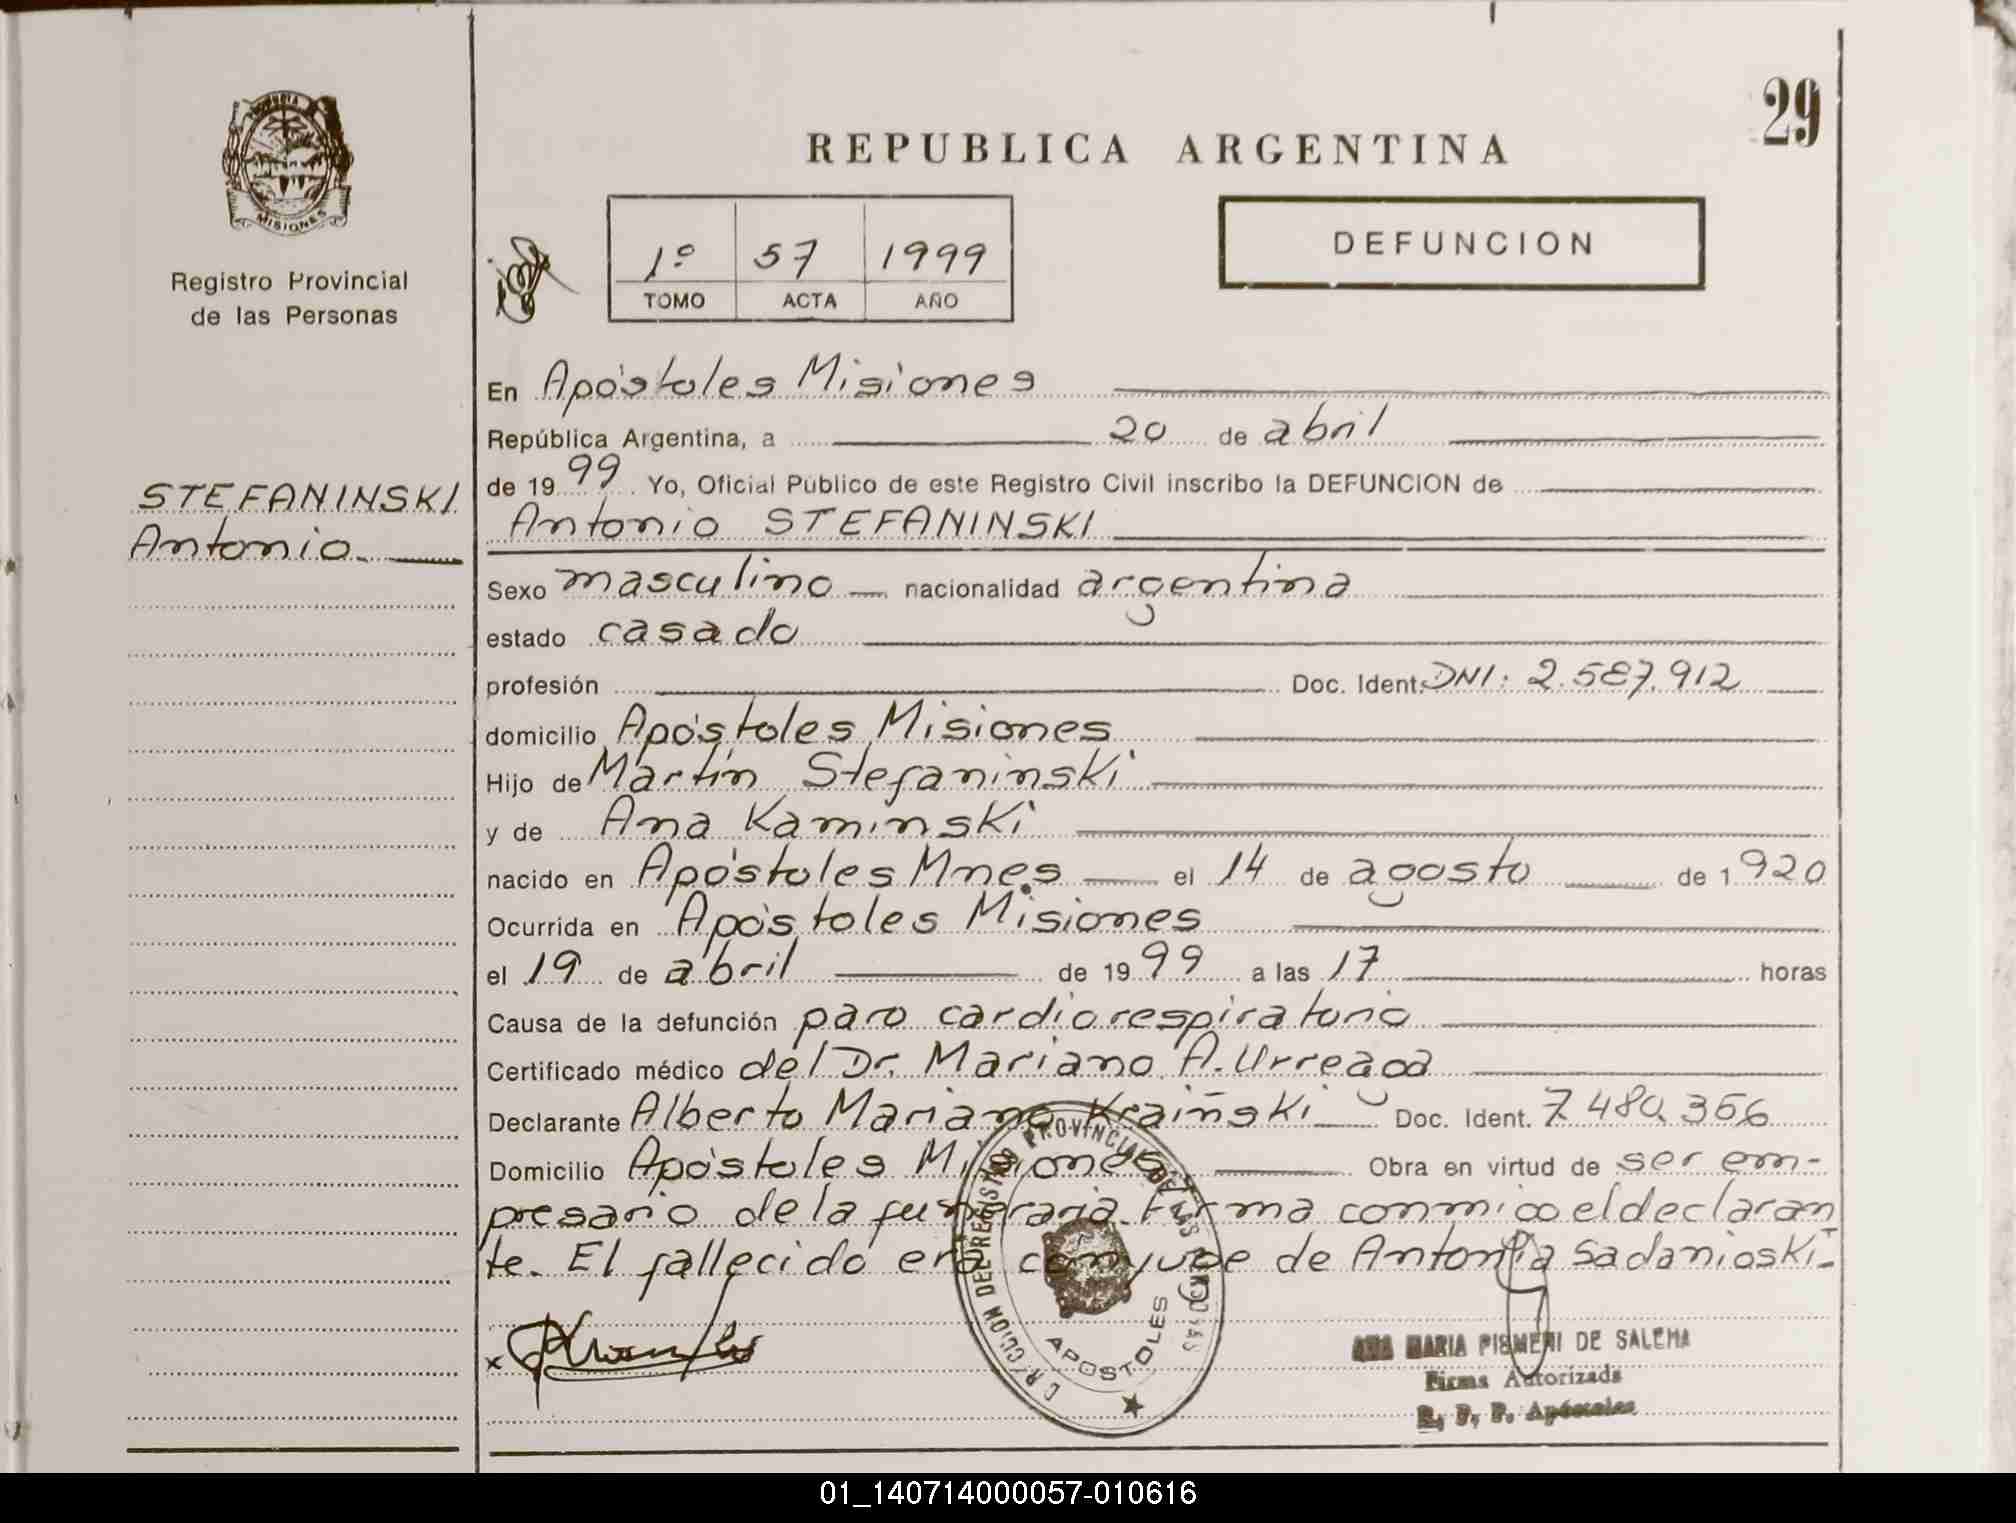 29
REPUBLICA ARGENTINA
MISIONES
Registro Provincial
de las Personas
1º 57 1999
TOMO ACTA AÑO
DEFUNCION
STEFANINSKI
Antonio
En Apóstoles Misiones
República Argentina, a 20 de abril
de 1999 Yo, Oficial Público de este Registro Civil inscribo la DEFUNCION de
Antonio STEFANINSKI
Sexo masculino nacionalidad argentina
estado casado
profesión Doc. Ident. DNI: 2.587.912
domicilio Apóstoles Misiones
Hijo de Martín Stefaninski
y de Ana Kaminski
nacido en Apóstoles Mnes el 14 de agosto de 1920
Ocurrida en Apóstoles Misiones
el 19 de abril de 1999 a las 17 horas
Causa de la defunción paro cardiorespiratorio
Certificado médico del Dr. Mariano A. Urreaga
Declarante Alberto Mariano Kraiñski Doc. Ident. 7.480.356
Domicilio Apóstoles Misiones Obra en virtud de ser em-
presario de la funeraria. Firma conmigo el declaran
te. El fallecido era conyuge de Antonia Sadanioski.
DEL REGISTRO PROVINCIAL DE LAS PERSONAS
APOSTOLES
MARIA PISMENI DE SALEMA
Firma Autorizada
R. P. P. Apóstoles
01_140714000057-010616